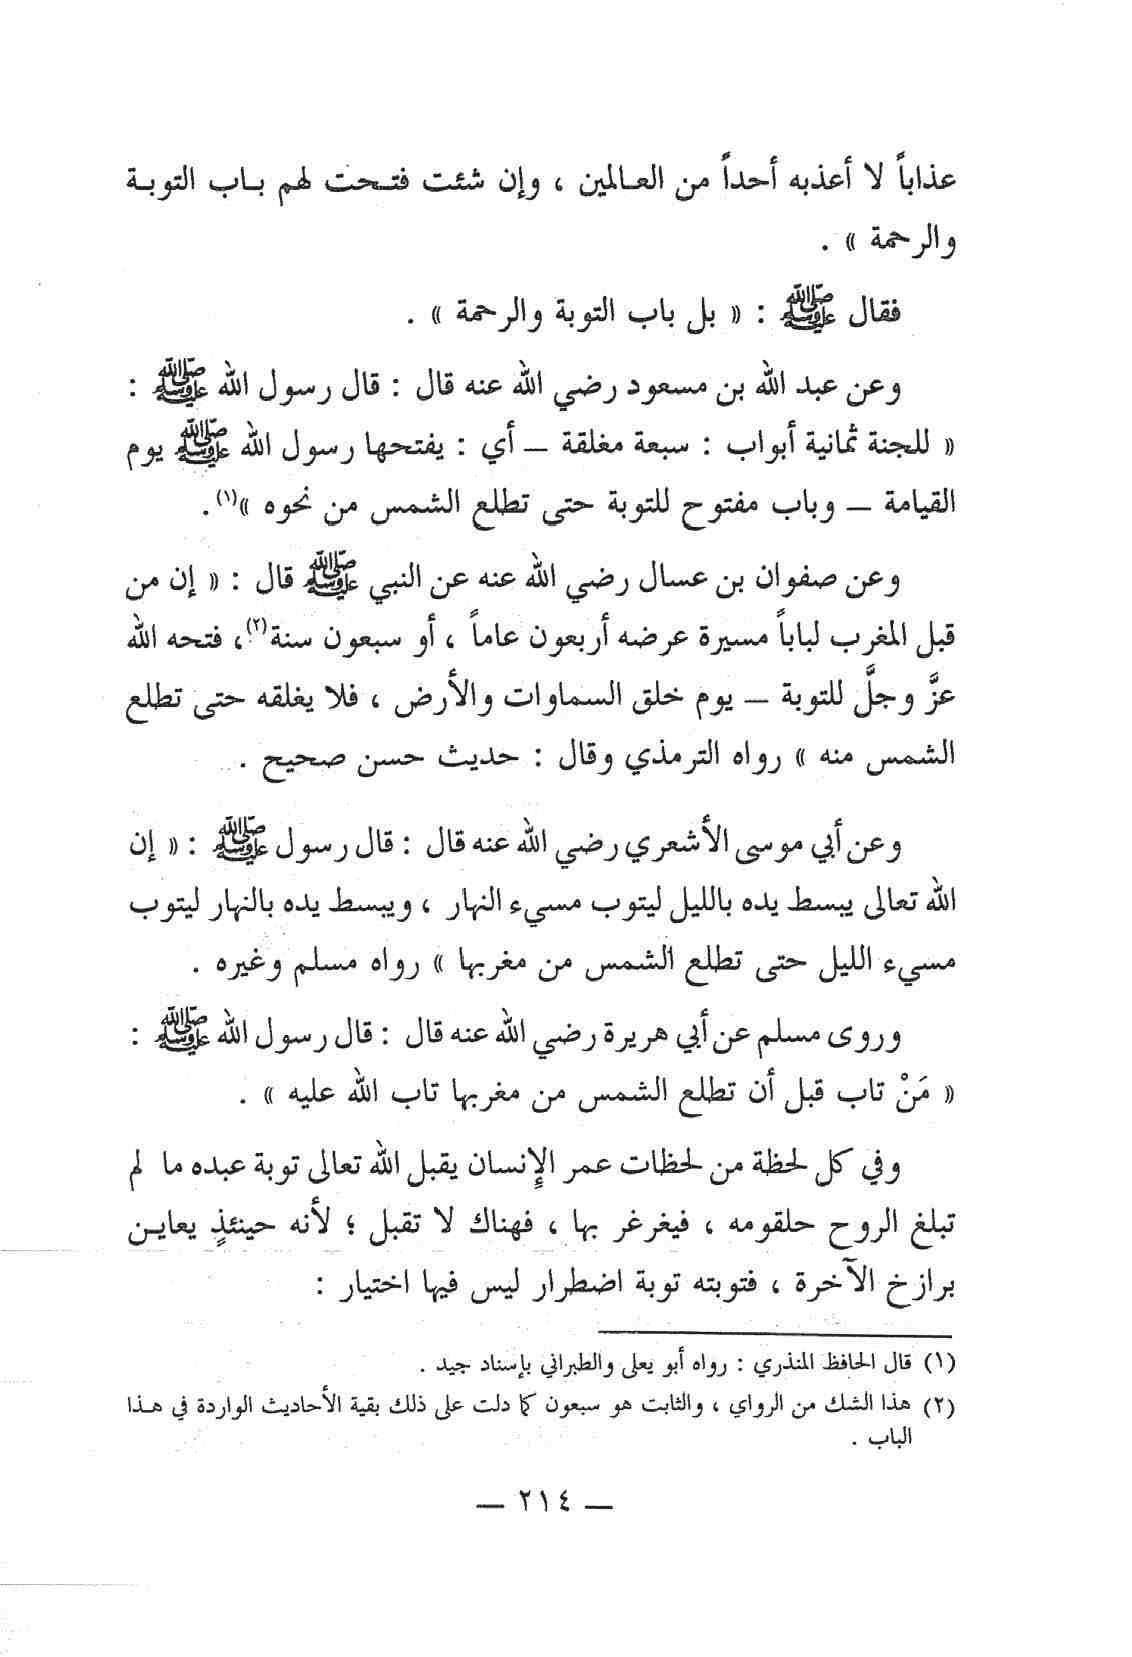 عذاباً لا أعذبه أحداً من العالمين ، وإن شئت فتحت لهم باب التوبة
والرحمة » .
فقال ﷺ : « بل باب التوبة والرحمة » .
وعن عبد الله بن مسعود رضي الله عنه قال : قال رسول الله ﷺ :
« للجنة ثمانية أبواب : سبعة مغلقة – أي : يفتحها رسول الله ﷺ يوم
القيامة – وباب مفتوح للتوبة حتى تطلع الشمس من نحوه »(١).
وعن صفوان بن عسال رضي الله عنه عن النبي ﷺ قال : « إن من
قبل المغرب لباباً مسيرة عرضه أربعون عاماً ، أو سبعون سنة(٢)، فتحه الله
عزَّ وجلَّ للتوبة – يوم خلق السماوات والأرض ، فلا يغلقه حتى تطلع
الشمس منه » رواه الترمذي وقال : حديث حسن صحيح .
وعن أبي موسى الأشعري رضي الله عنه قال : قال رسول ﷺ : « إن
الله تعالى يبسط يده بالليل ليتوب مسيء النهار ، ويبسط يده بالنهار ليتوب
مسيء الليل حتى تطلع الشمس من مغربها » رواه مسلم وغيره .
وروى مسلم عن أبي هريرة رضي الله عنه قال : قال رسول الله ﷺ :
« مَنْ تاب قبل أن تطلع الشمس من مغربها تاب الله عليه » .
وفي كل لحظة من لحظات عمر الإنسان يقبل الله تعالى توبة عبده ما لم
تبلغ الروح حلقومه ، فيغرغر بها ، فهناك لا تقبل ؛ لأنه حينئذٍ يعاين
برازخ الآخرة ، فتوبته توبة اضطرار ليس فيها اختيار :
(١) قال الحافظ المنذري : رواه أبو يعلى والطبراني بإسناد جيد .
(٢) هذا الشك من الرواي ، والثابت هو سبعون كما دلت على ذلك بقية الأحاديث الواردة في هذا
الباب .
– ٢١٤ –